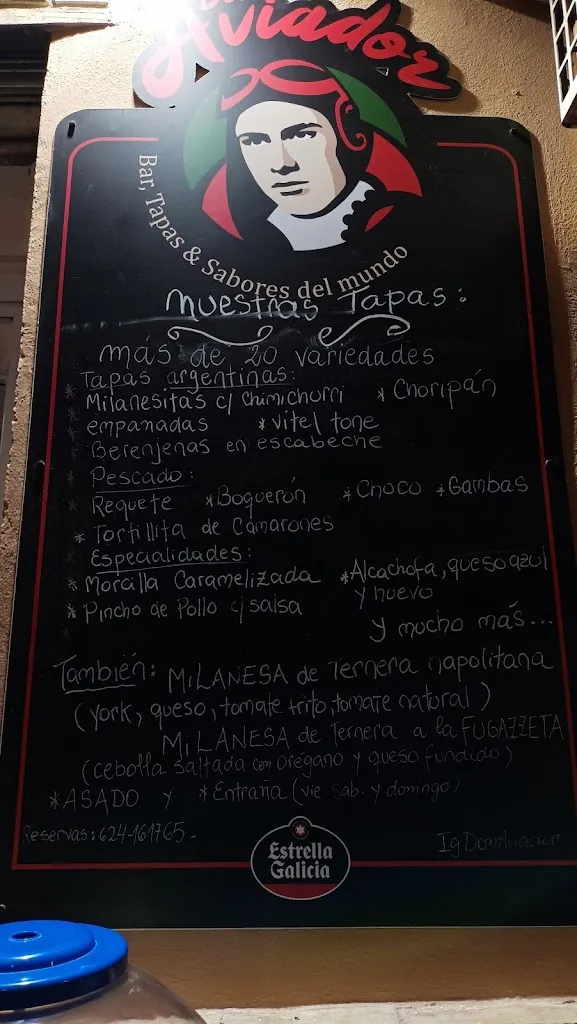 Aviador
Bar, Tapas & Sabores del mundo
Nuestras Tapas:
más de 20 variedades
Tapas argentinas:
* Milanesitas c/ Chimichurri * Choripán
* empanadas * Vitel tone
* Berenjenas en escabeche
* Pescado:
* Requete * Boquerón * Choco * Gambas
* Tortillita de Camarones
* Especialidades:
* Morcilla Caramelizada * Alcachofa, queso azul
y huevo
* Pincho de Pollo c/ salsa
y mucho más...
También: MILANESA de Ternera napolitana
(york, queso, tomate frito, tomate natural)
MILANESA de Ternera a la FUGAZZETA
(cebolla saltada con orégano y queso fundido)
* ASADO y * Entraña (vie. sab. y domingo)
Reservas: 624-161765- Ig DonAviador
Estrella
Galicia